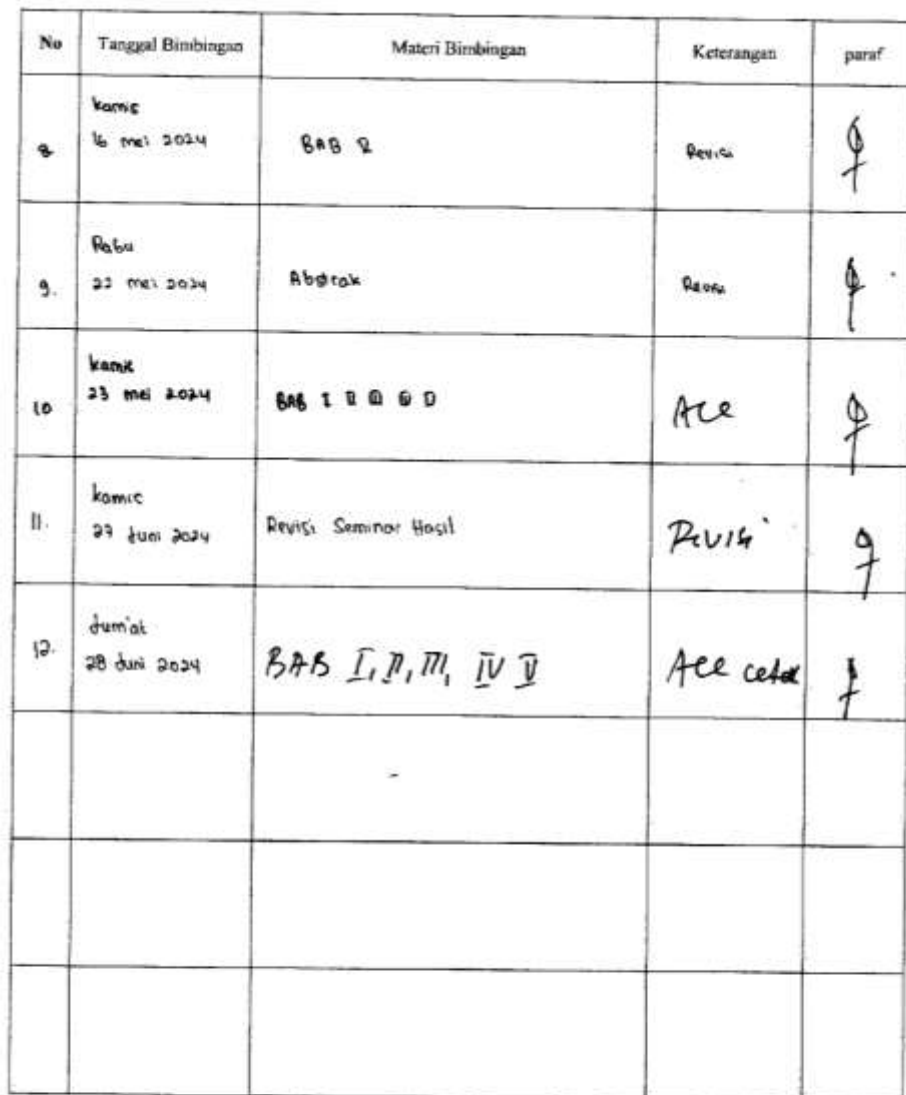 No Tanggal Bimbingan Materi Bimbingan Keterangan paraf
8 Kamis
16 mei 2024 BAB Revisi
Rabu
9. 22 mei 2024 Abstrak Revisi
Kamis
10 23 mei 2024 BAB I Acc
Kamis
11. 27 Juni 2024 Revisi Seminar Hasil Revisi
Jum'at
12. 28 Juni 2024 BAB I, II, III, IV V Acc cetak